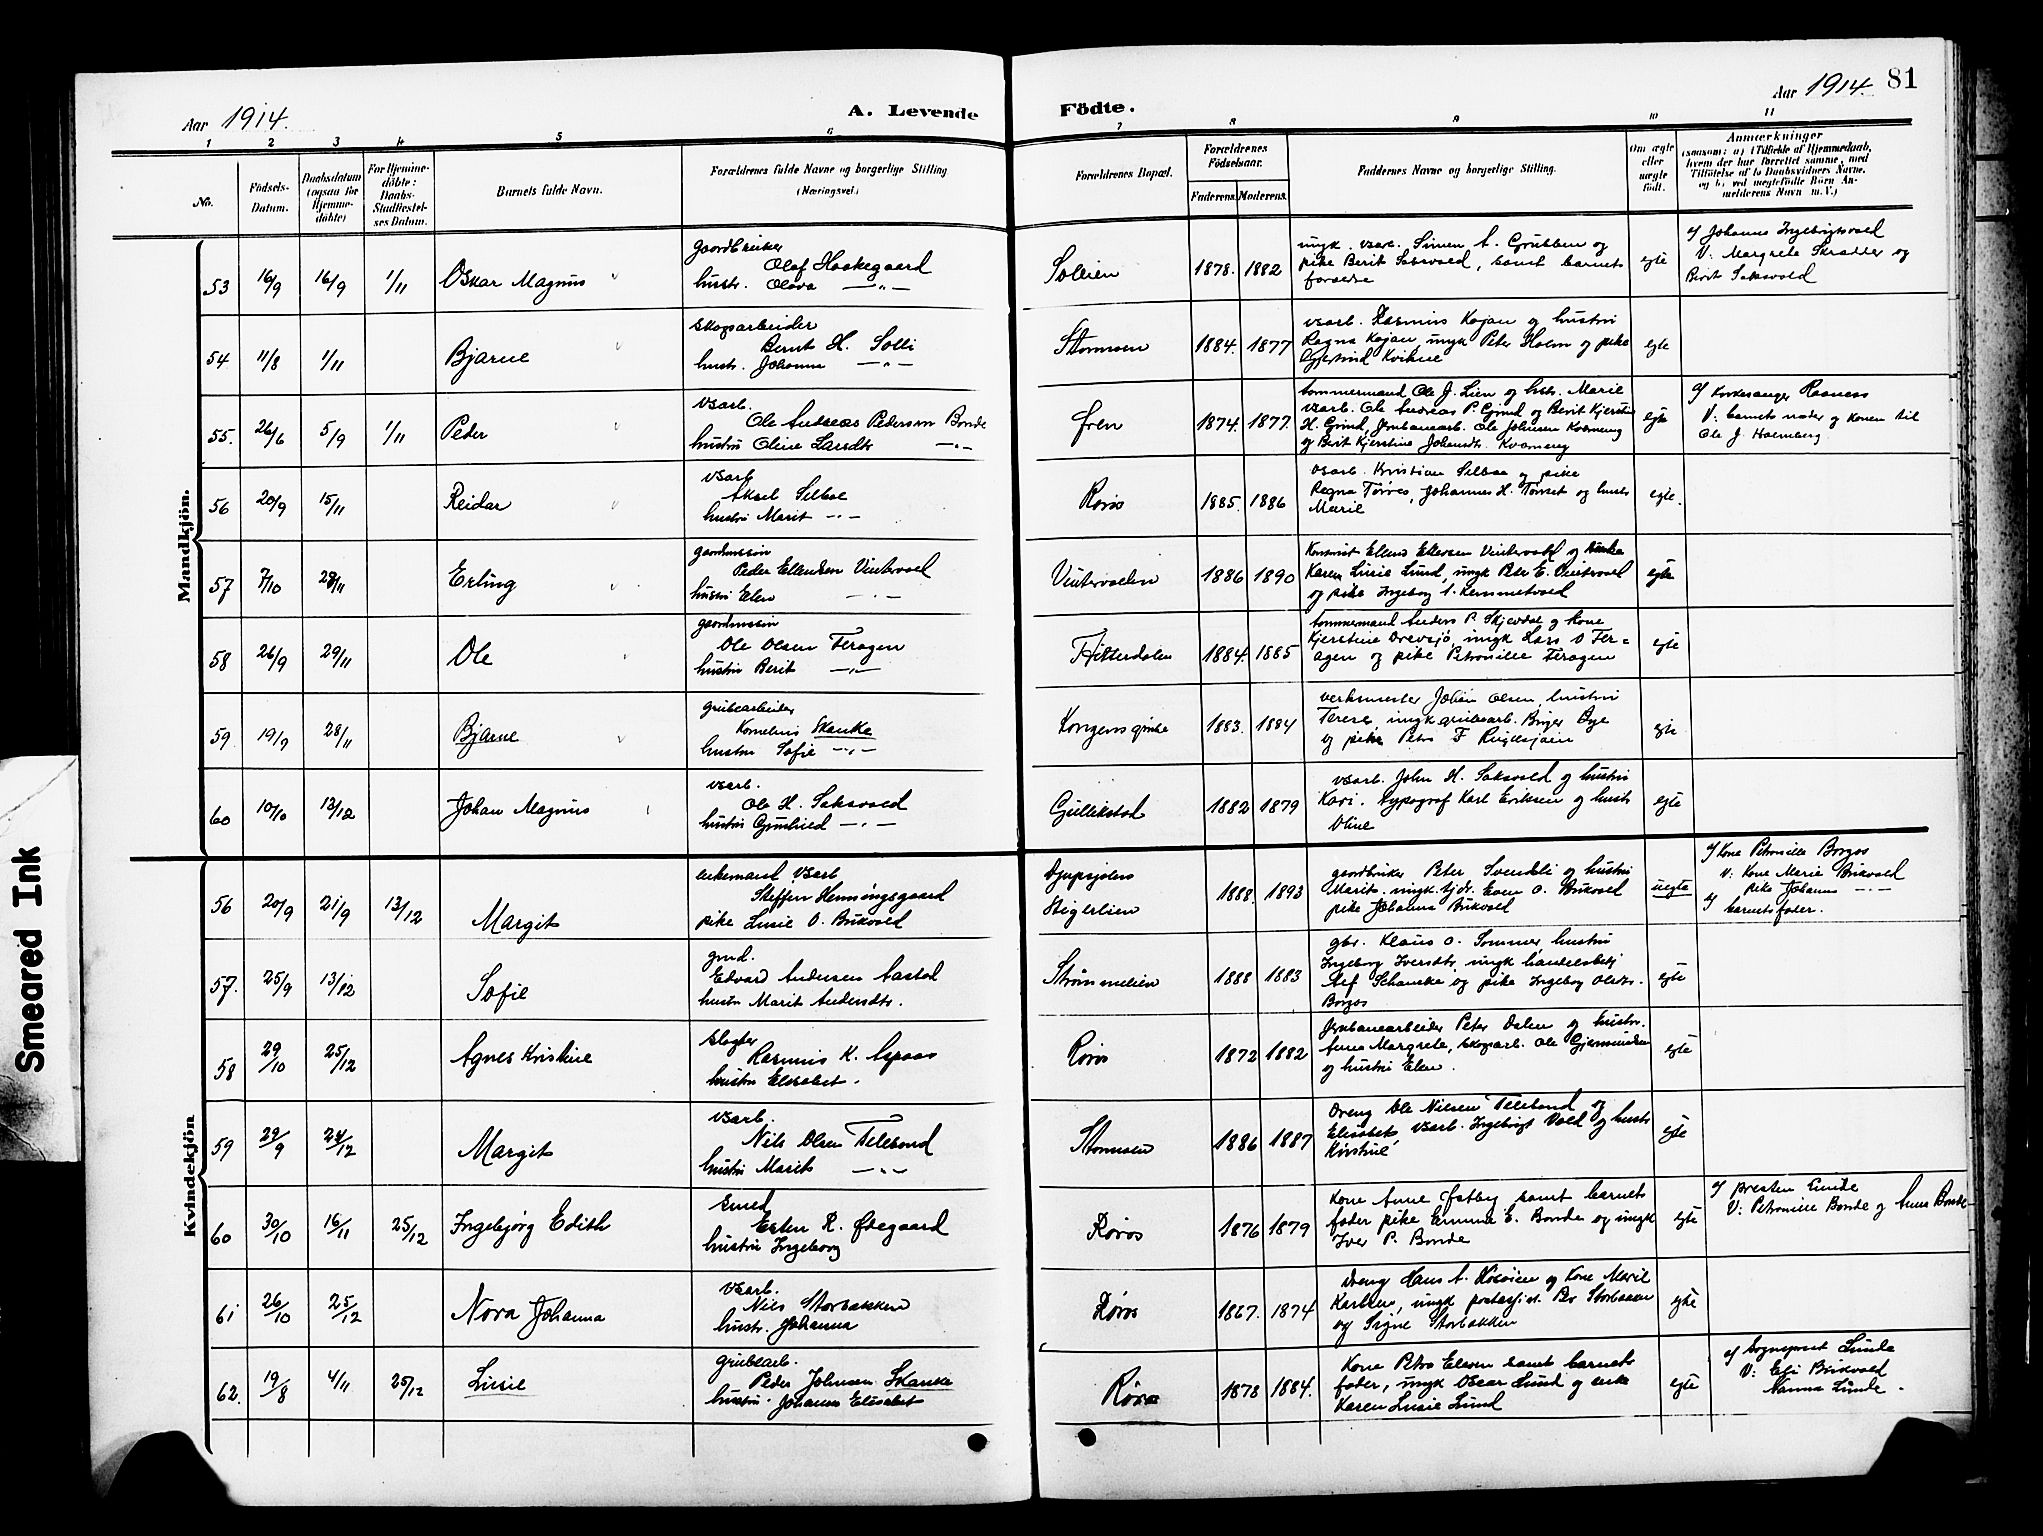 Aar 1914.
A. Levende
Födte.
Aar 1914. 81
1 2 3 4 5 6 7 8 9 10 11
No.
Födsels-
Datum.
Daabsdatum
(ogsaa for
Hjemme-
döbte)
For Hjemme-
döbte:
Daabs-
Stadfæstel-
ses Datum.
Barnets fulde Navn.
Forældrenes fulde Navne og borgerlige Stilling
(Næringsvei.)
Forældrenes Bopæl.
Forældrenes
Födselsaar.
Faderens. Moderens.
Faddernes Navne og borgerlige Stilling.
Om ægte
eller
uægte
født.
Anmærkninger
(saasom: a) i Tilfælde af Hjemmedaab,
hvem der har forrettet samme, med
Tilföielse af to Daabsvidners Navne,
og b) ved uegtefödte Börn An-
melderens Navn m. V.)
Mandkjön.
53 16/9 16/9 1/11 Oskar Magnus
gaardbruker
Olaf Haakegaard
hustr. Olava —"—
Soleien 1878. 1882
ungk. vsarb. Simen A. Grubben og
pike Berit Saksvold, samt barnets
forældre
egte
af Johannes Ingebrigtsvold
V: Margrete Skrødder og
Berit Saksvold
54 11/8 1/11 Bjarne
skogsarbeider
Bernt H. Solli
hustr. Johanna —"—
Stormoen 1884. 1877
vsarb. Rasmus Kojan og hustru
Ragna Kojan, ungk Peter Holm og pike
Gjertrud Kvikne
egte
55. 26/6 5/9 1/11 Peder
vsarb.
Ole Andreas Pedersen Bonde
hustru Oline Larsdtr —"—
Øren 1874. 1877.
tømmermand Ole J. Lien og hstr. Marie
vsarb. Ole Andreas P. Grind og Berit Kjerstine
H. Grind, Jernbanearb. Ole Johnsen Kverneng
og Berit Kjerstine Johansdtr. Kverneng
egte
af kirkesanger Raaness
V: barnets moder og konen til
Ole J. Holmberg
56 20/9 15/11 Reidar
vsarb
Aksel Selboe
hustru Marit —"—
Røros 1885. 1886
vsarb. Kristian Selboe og pike
Ragna Tørres, Johannes H. Tørset og hustr
Marie
egte.
57 7/10 29/11 Erling
gaardmssøn
Peder Ellendsen Vintervold
hustru Elen —"—
Vintervolden 1886 1890
Karen Lusie Lund, ungk Peter E. Vintervold
og pike Ingeborg A. Remmetvold
egte
58 26/9 29/11 Ole
gaardmssøn
Ole Olsen Feragen
hustru Berit —"—
Hitterdalen 1884. 1885
tømmermand Anders P. Skjevdal og kone
Kjerstine Drevsjø, ungk Lars O Fer=
agen og pike Petronille Feragen
egte
59 19/9 28/11 Bjarne
grubearbeider
Kornelius Skanke
hustru Sofie —"—
Kongensgrube 1883. 1884
verksmester Johan Olsen, hustru
Terese, ungk grubearb. Birger Øye
og pike Petra F Rugelsjøien
egte
60 10/10 13/12 Johan Magnus
vsarb.
Ole H. Saksvold
hustru Gunhild —"—
Gullikstad 1882 1879
vsarb. John H. Saksvold og hustru
Kari. typograf Karl Eriksen og hustr
Oline
egte
Kvindekjön
56 20/9 21/9 13/12 Margit
enkemand vsarb
Steffen Henningsgaard
pike Lusie O. Bukvold
Djupsjølien
Stiglelien 1888. 1893
gaardbruker Peter Svendli og hustru
Marit. ungk tjdr. Even O. Bukvold
pike Johanna Bukvold
uegte
af Kone Petronille Borgos
V: Kone Marie Bukvold
pike Johanna —"—
af barnets fader.
57. 25/9 13/12 Sofie
gmd.
Edvard Andersen Aastad
hustru Marit Andersdtr.
Strømmelien 1888 1883
gbr. Klaus O. Sommer hustru
Ingeborg Iversdtr, ungk handelsbetj
Alf Schancke og pike Ingeborg Olsdtr.
Borgos
egte
58 29/10 25/12 Agnes Kristine
slagter
Rasmus K. Aspaas
hustru Elisabet.
Røros 1872 1882
Jernbanearbeider Peter Dalen og hustru
Anna Margrete, skogsarb. Ole Gjermundsen
og hustru Elen.
egte
59 29/9 24/12 Margit
vsarb.
Nils Olsen Telebond
hustru Marit —"—
Stormoen 1886 1887
Dreng Ole Nilsen Telebond og
Elisabet, vsarb. Ingebrigt Vold og hustr
Kirstine
egte
60 30/10 16/11 25/12 Ingebjørg Edith
smed
Esten R. Ødegaard
hustru Ingeborg
Røros 1876 1879
Kone Anne Østby samt barnets
fader pike Emma E. Bonde og ungk
Iver P. Bonde
egte
af presten Lunde
V: Petronille Bonde og Anna Bonde
61 26/10 25/12 Nora Johanna
vsarb.
Nils Storbakken
hustr. Johanna
Røros 1867. 1874
Dreng Hans A. Høsøien og Kone Marie
Karlsen, ungk postassist. Per Storbakken
og Signe Storbakken
egte
62. 19/8 4/11 25/12 Lusie
grubearb.
Peder Johnsen Skanke
hustru Johanna Elisabet
Røros 1878 1884.
Kone Petra Elven samt barnets
fader, ungk Oscar Lund og enke
Karen Lusie Lund
egte
af Sogneprest Lunde
V: Eli Bukvold
Nanna Lunde.
Smeared Ink